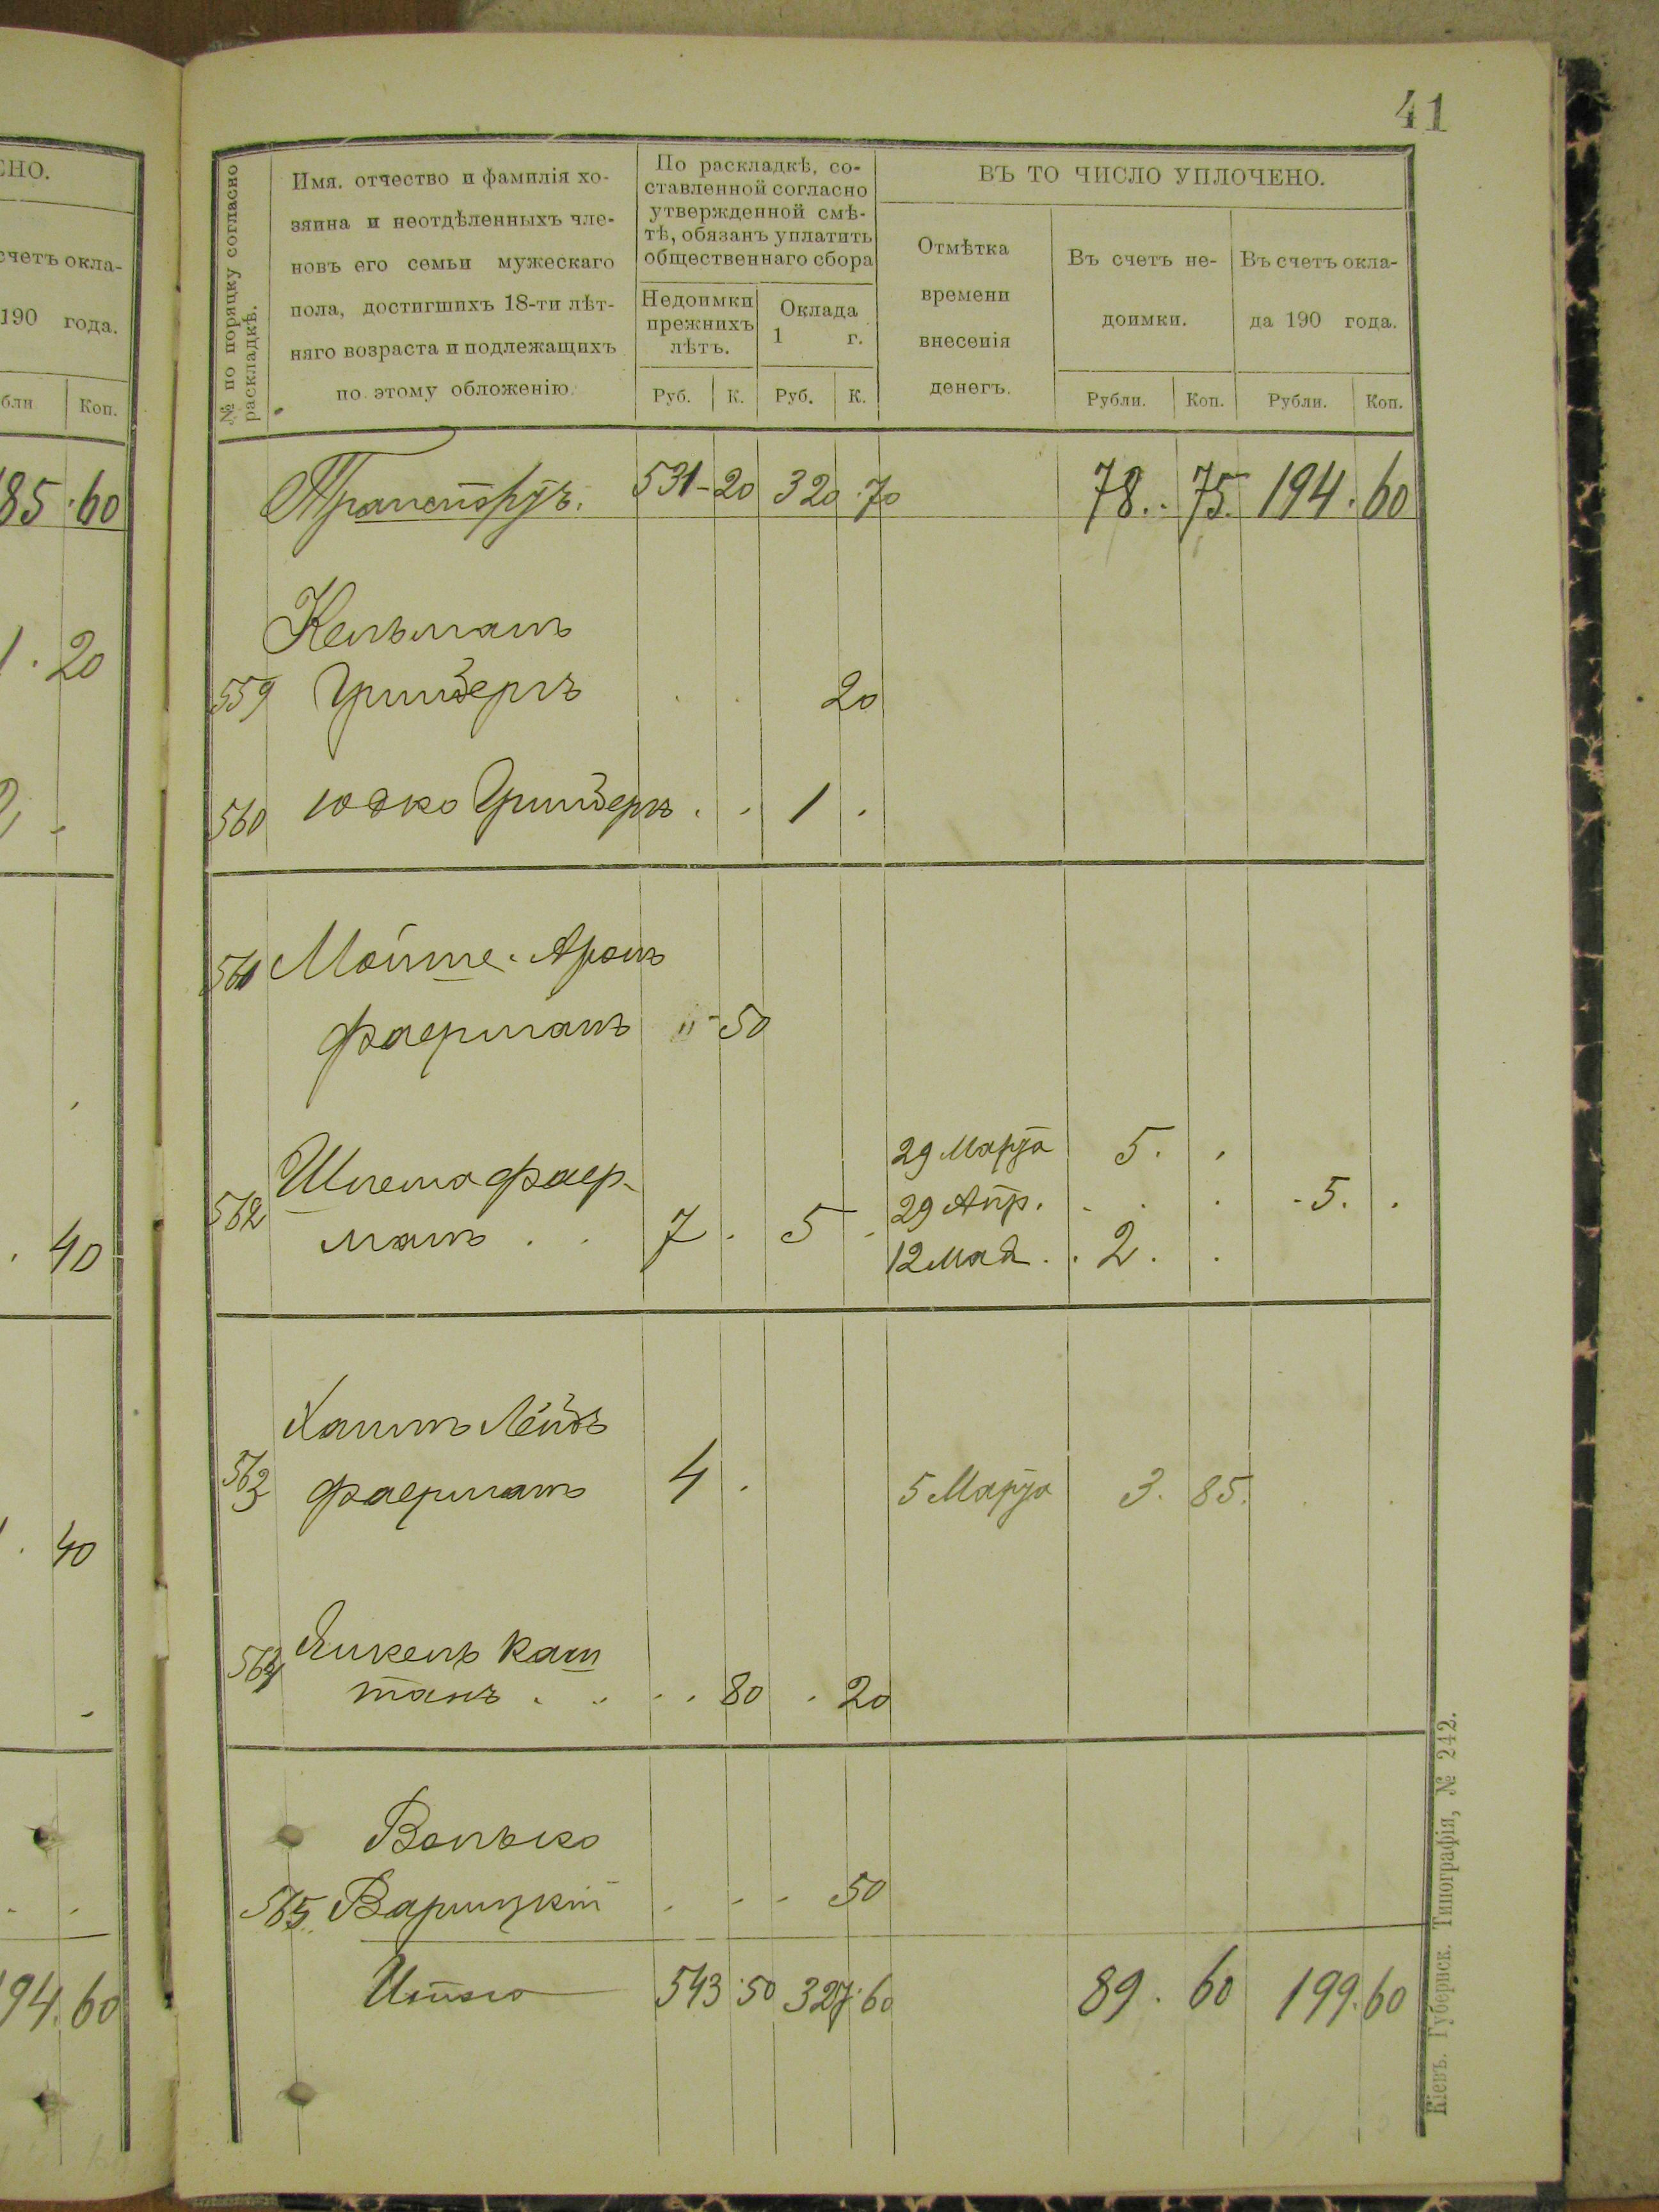 41
ЕНО.
счетъ окла-
190 года.
бли Коп.
85 . 60
1 . 20
. 40
. 40
94. 60
№ по поряцку согласно
раскладкѣ.
Имя. отчество и фамилія хо-
зяина и неотдѣленныхъ чле-
новъ его семьи мужескаго
пола, достигшихъ 18-ти лѣт-
няго возраста и подлежащихъ
по этому обложенію.
По раскладкѣ, со-
ставленной согласно
утвержденной смѣ-
тѣ, обязанъ уплатить
общественнаго сбора
Недоимки
прежнихъ
лѣтъ.
Оклада
1 г.
Руб. К. Руб. К.
ВЪ ТО ЧИСЛО УПЛОЧЕНО.
Отмѣтка
времени
внесенія
денегъ.
Въ счетъ не-
доимки.
Въ счетъ окла-
да 190 года.
Рубли. Коп. Рубли. Коп.
Транспортъ. 531-20 320.70 78.. 75. 194.60
Кельманъ
559 Гринбергъ . . 20
560 Юдко Гринбергъ . . 1 .
561 Мойше-Аронъ
Фаерманъ " - 50
29 Марта 5. .
562 Шлема Фаер-
29 Апр. . . . - 5. .
манъ . . 7 . 5 -
12 Мая . . 2 . .
Хаимъ Лейбъ
563 Фаерманъ 4 . 5 Марта 3. 85. . .
564 Янкель Каш
танъ . . . . 80 . 20
Волько
565. Варшцкій . . . 50
Итого 543.50 327.60 89 . 60 199.60
Кіевъ. Губернск. Типографія, № 242.